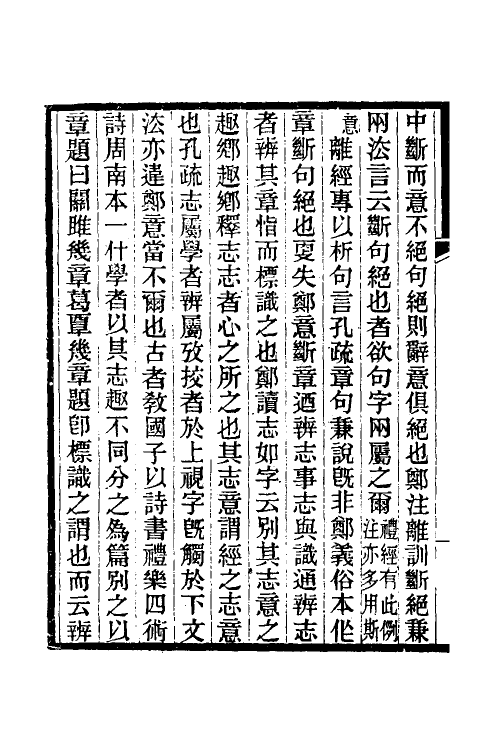 中斷而意不絕句絕則辭意俱絕也鄭注離訓斷絕兼
兩泫言云斷句絕也者欲句字兩屬之爾禮經有此例注亦多用斯
意離經專以析句言孔疏章句兼說旣非鄭義俗本作
章斷句絕也夏失鄭意斷章迺辨志事志與識通辨志
者辨其章恉而標識之也鄭讀志如字云別其志意之
趣鄉趣鄉釋志志者心之所之也其志意謂經之志意
也孔疏志屬學者辨屬攷挍者於上視字旣觸於下文
泫亦違鄭意當不爾也古者敎國子以詩書禮樂四術
詩周南本一什學者以其志趣不同分之為篇別之以
章題曰關雎幾章葛覃幾章題卽標識之謂也而云辨